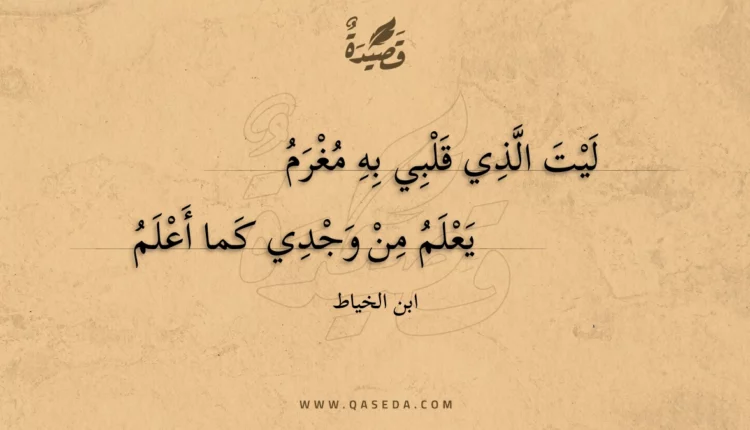 قَصِيدَةٌ
لَيْتَ الَّذِي قَلْبِي بِهِ مُغْرَمُ
يَعْلَمُ مِنْ وَجْدِي كَما أَعْلَمُ
ابن الخياط
WWW.QASEDA.COM